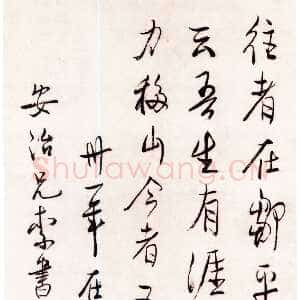 往者在鄒平
云吾生有涯
力移山今者
卅一年在
安治兄索書
Shufawang.cn